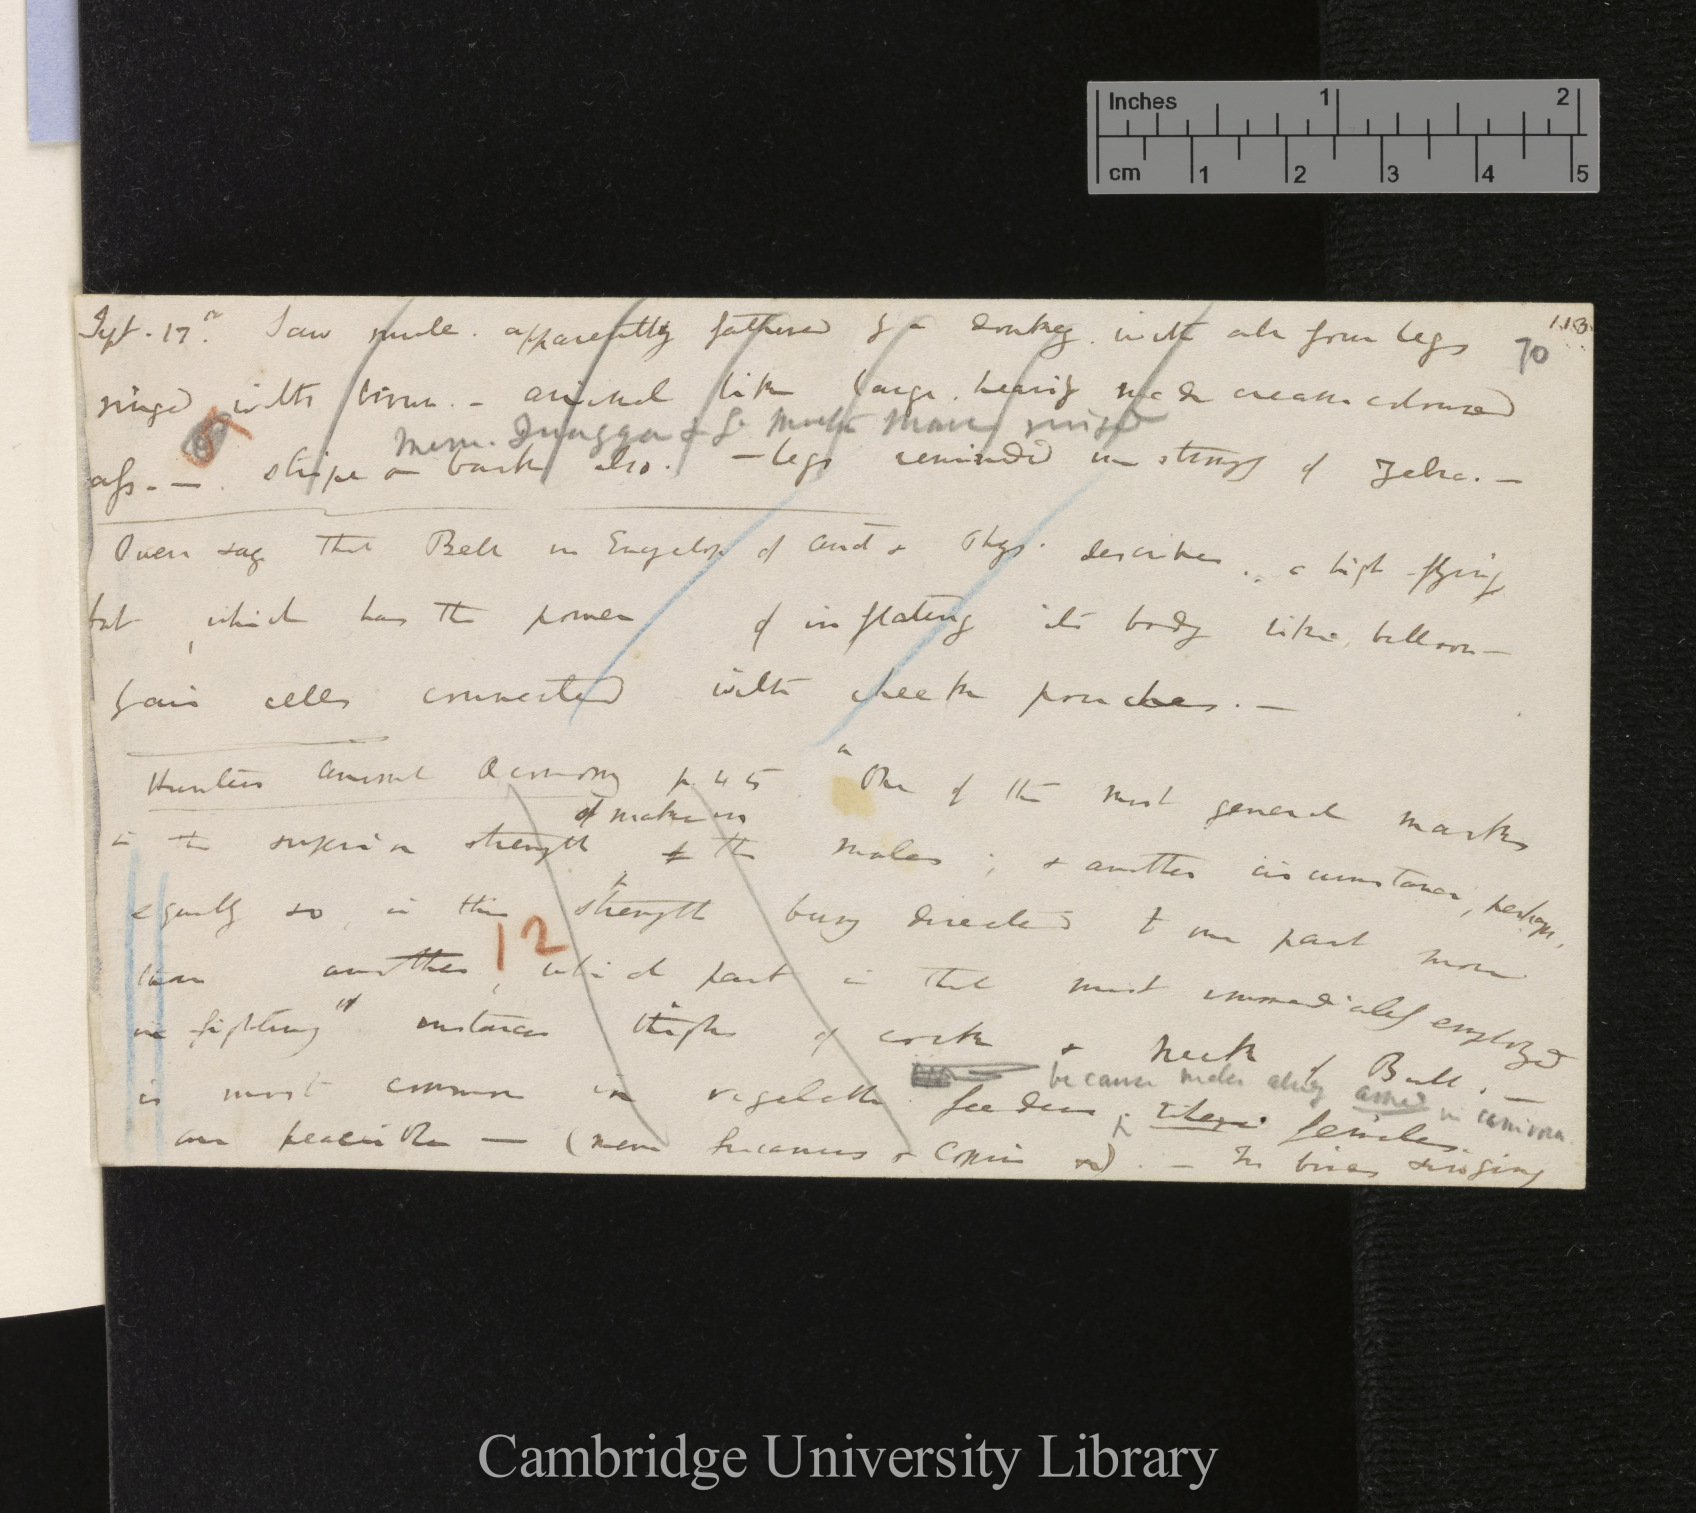 Inches 1 2
cm 1 2 3 4 5
113
70
Sept. 17th. Saw mule. apparently fathered by a donkey. with all four legs
ringed with brown. — animal like large, heavily made cream-coloured
Mem. Quagga & Ld Morton's Mare ringed
ass. — stripe on back also. — legs reminded me strongly of Zebra. —
Owen says that Bell in Encyclop of Anat & Phys. describes a high-flying
bat, which has the power of inflating its body like balloon —
by air cells connected with cheek pouches. —
Hunter's Animal Oeconomy p. 45. "One of the most general marks
is the superior strength of make in the males; & another circumstance, perhaps,
equally so, is this strength being directed to one part more
12
than another, which part is that most immediately employed
in fighting" instances thighs of cock & neck of Bull. —
because males always armed in carnivora
is most common in vegetable feeders, their females
are peaceable — (mem. & ). — In birds singing
Cambridge University Library